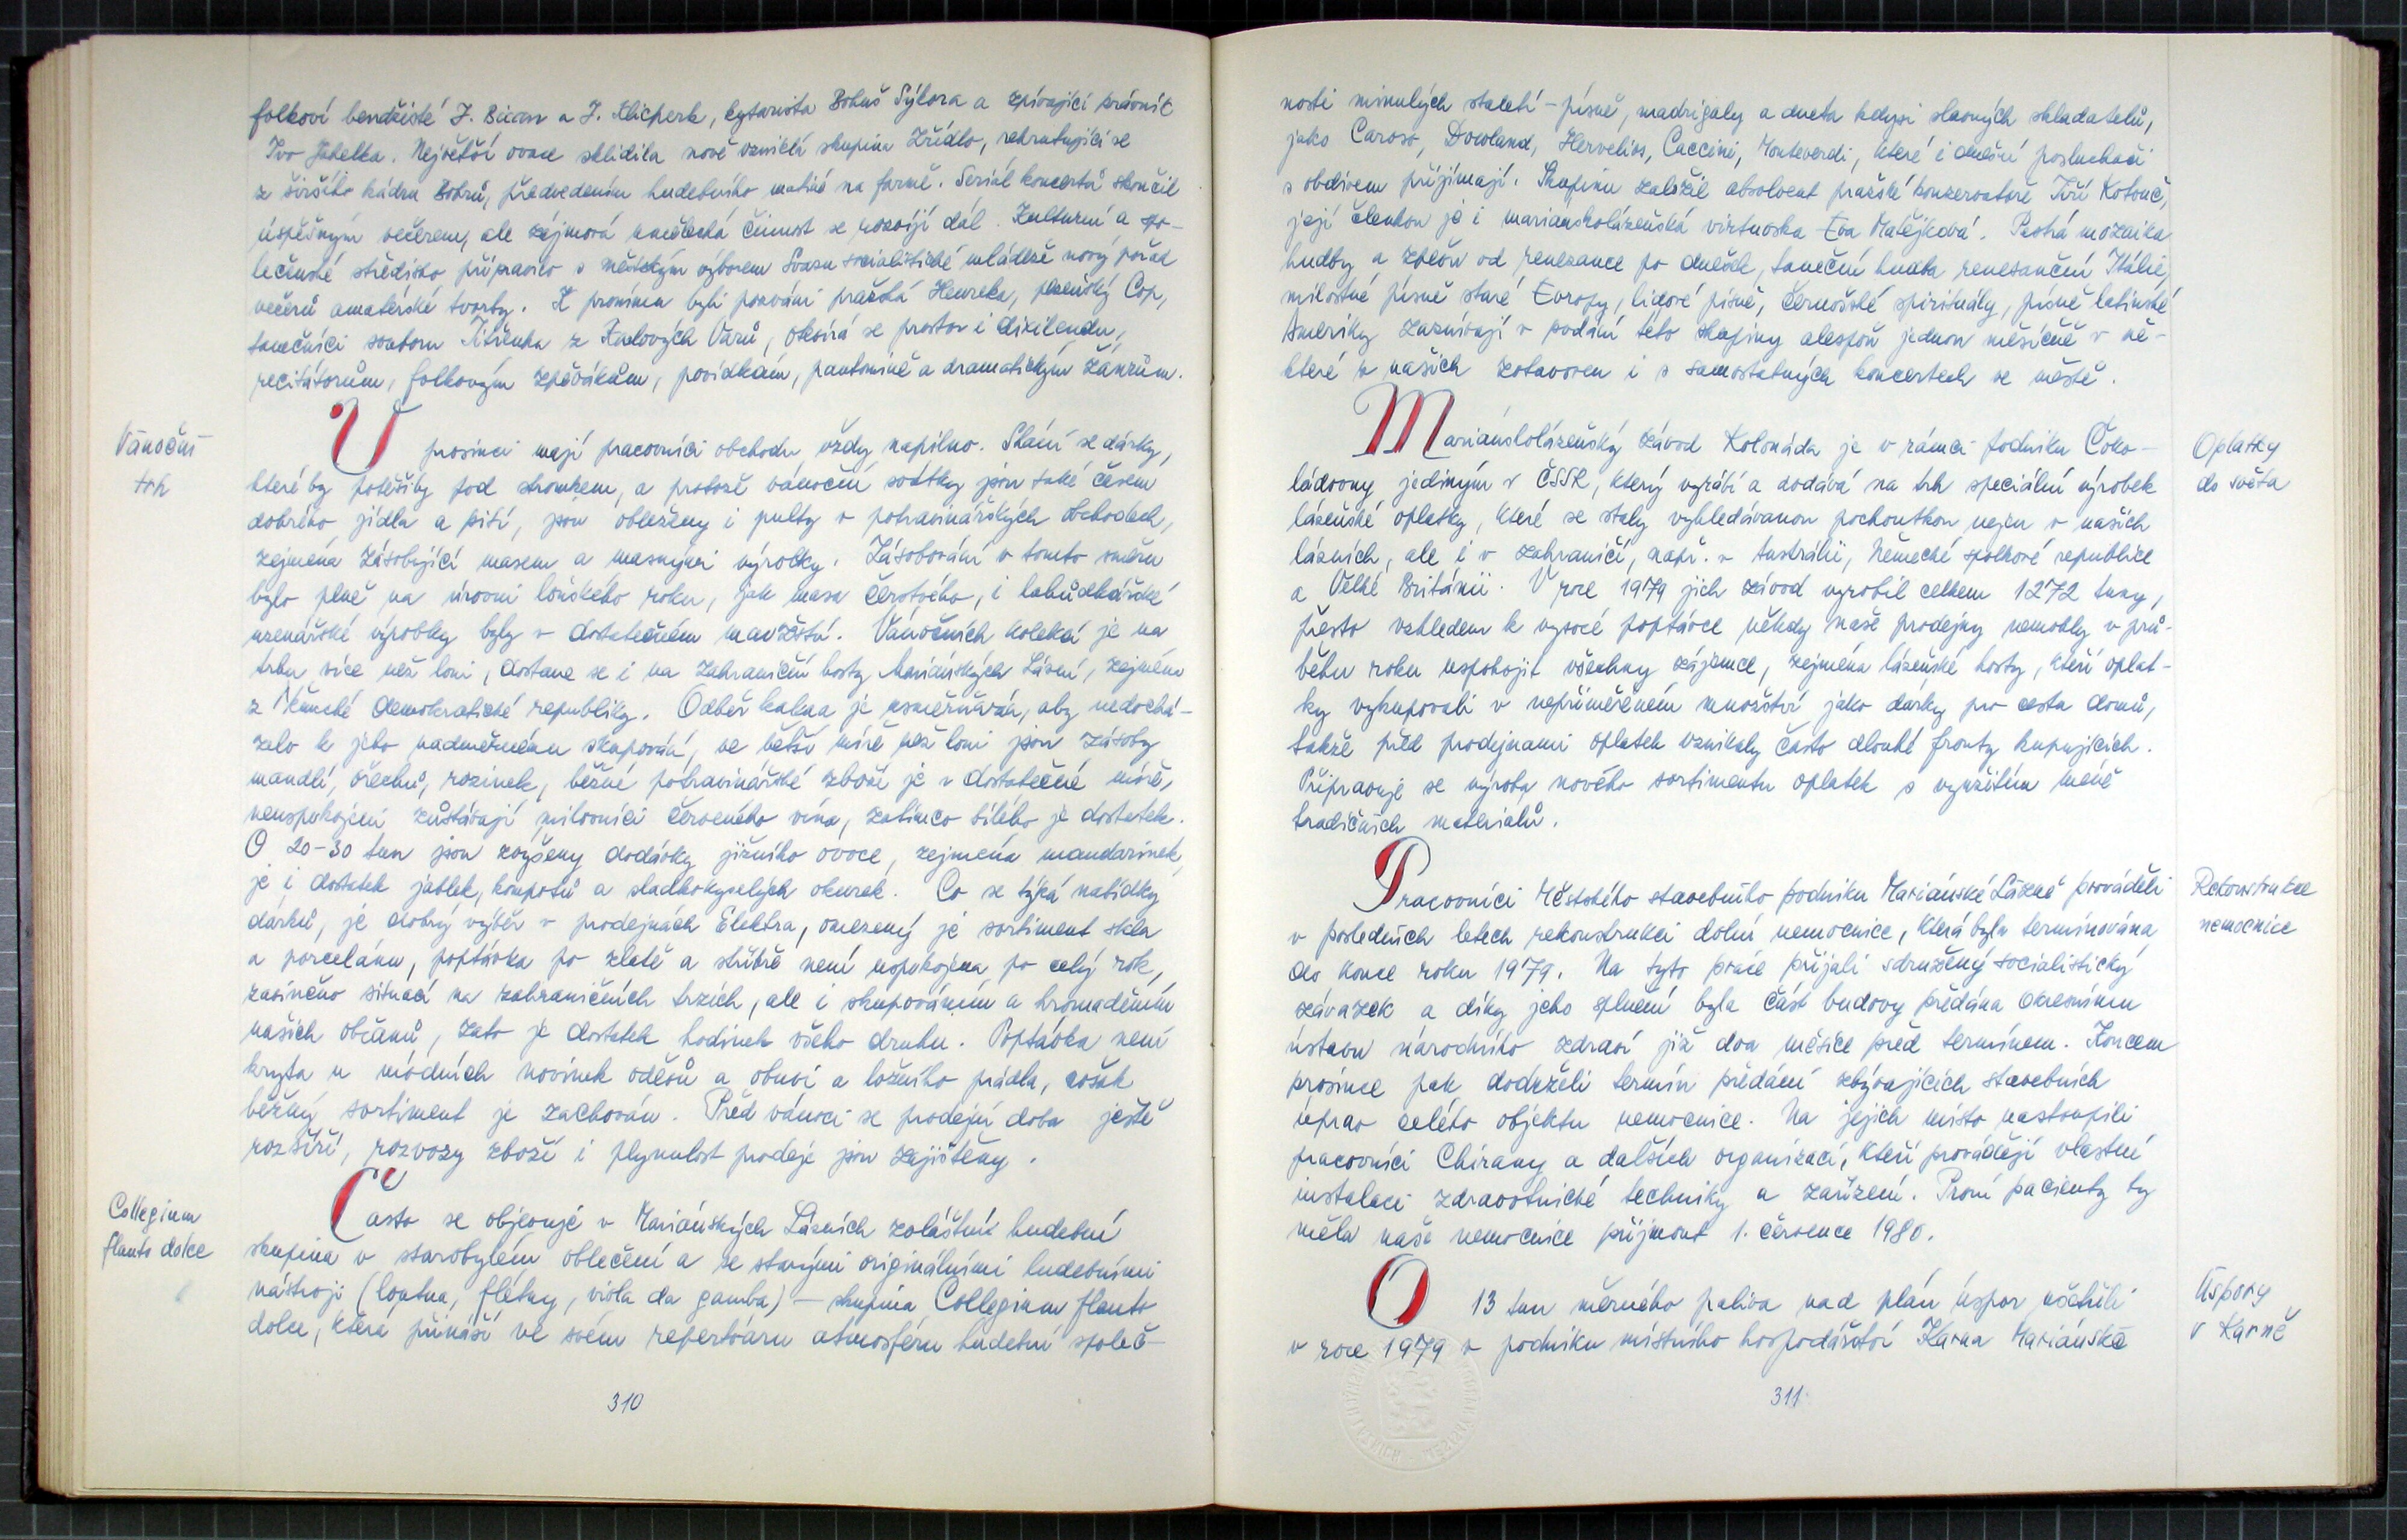 folkoví bendžisté J. Bican a J. Klicperk, kytarista Bohuš Sýkora a zpívající právník
Ivo Jahelka. Největší ovace sklidila nově vzniklá skupina Zřídlo, rekrutující se
z širšího kádru Bobrů, předvedením hudebního matiné na farmě. Seriál koncertů skončil
úspěšným večerem, ale zájmová umělecká činnost se rozvíjí dál. Kulturní a spo-
lečenské středisko připravilo s městským výborem Svazu socialistické mládeže nový pořad
večerů amatérské tvorby. K prominu byli pozváni pražská Heureka, plzeňský Cop,
tanečníci souboru Mišenka z Karlových Varů, otevírá se prostor i dixilendu,
recitátorům, folkovým zpěvákům, povídkám, pantomimě a dramatickým žánrům.
Vánoční
trh
V prosinci mají pracovníci obchodu vždy napilno. Shání se dárky,
které by potěšily pod stromkem, a protože vánoční svátky jsou také časem
dobrého jídla a pití, jsou obleženy i pulty v potravinářských obchodech,
zejména zásobující masem a masnými výrobky. Zásobování v tomto směru
bylo plně na úrovni loňského roku, jak masa čerstvého, i lahůdkářské
uzenářské výrobky byly v dostatečném množství. Vánočních kolekcí je na
trhu více než loni, dostane se i na zahraniční hosty Mariánských Lázní, zejména
z Německé demokratické republiky. Odběr kakaa je usměrňován, aby nedochá-
zelo k jeho nadměrnému skupování, ve větší míře než loni jsou zásoby
mandlí, ořechů, rozinek, běžné potravinářské zboží je v dostatečné míře,
neuspokojeni zůstávají milovníci červeného vína, zatímco bílého je dostatek.
O 20-30 tun jsou zvýšeny dodávky jižního ovoce, zejména mandarinek,
je i dostatek jablek, kompotů a sladkokyselých okurek. Co se týká nabídky
dárků, je dobrý výběr v prodejnách Elektra, omezený je sortiment skla
a porcelánu, poptávka po zlatě a stříbře není uspokojena po celý rok,
zaviněno situací na zahraničních trzích, ale i skupováním a hromaděním
našich občanů, zato je dostatek hodinek všeho druhu. Poptávka není
kryta u módních novinek oděvů a obuvi a ložního prádla, avšak
běžný sortiment je zachován. Před vánoci se prodejní doba ještě
rozšíří, rozvozy zboží i plynulost prodeje jsou zajištěny.
Collegium
flauto dolce
Často se objevuje v Mariánských Lázních zvláštní hudební
skupina v starobylém oblečení a se starými originálními hudebními
nástroji (loutna, flétny, viola da gamba) – skupina Collegium flauto
dolce, která přináší ve svém repertoáru atmosféru hudební společ-
310
nosti minulých staletí – písně, madrigaly a dueta kdysi slavných skladatelů,
jako Caroso, Dowland, Hervelius, Caccini, Monteverdi, které i dnešní posluchači
s obdivem přijímají. Skupinu založil absolvent pražské konzervatoře Jiří Kotouč,
její členkou je i marianskolázeňská virtuoska Eva Matějková. Pestrá mozaika
hudby a zpěvu od renezance po dnešek, taneční hudba renesanční Itálie,
milostné písně staré Evropy, lidové písně, černošské spirituály, písně latinské
Ameriky zaznívají v podání této skupiny alespoň jednou měsíčně v ně-
které z našich zotavoven i v samostatných koncertech ve městě.
Oplatky
do světa
Marianskolázeňský závod Kolonáda je v rámci podniku Čoko-
ládovny jediným v ČSSR, který vyrábí a dodává na trh speciální výrobek
lázeňské oplatky, které se staly vyhledávanou pochoutkou nejen v našich
lázních, ale i v zahraničí, např. v Austrálii, Německé spolkové republice
a Velké Británii. V roce 1979 jich závod vyrobil celkem 1272 tuny,
přesto vzhledem k vysoké poptávce někdy naše prodejny nemohly v prů-
běhu roku uspokojit všechny zájemce, zejména lázeňské hosty, kteří oplat-
ky vykupovali v nepřiměřeném množství jako dárky pro cestu domů,
takže před prodejnami oplatek vznikaly často dlouhé fronty kupujících.
Připravuje se výroba nového sortimentu oplatek s využitím méně
tradičních materialů.
Rekonstrukce
nemocnice
Pracovníci Městského stavebního podniku Mariánské Lázně prováděli
v posledních letech rekonstrukci dolní nemocnice, která byla terminována
do konce roku 1979. Na tyto práce přijali sdružený socialistický
závazek a díky jeho splnění byla část budovy předána Okresnímu
ústavu národního zdraví již dva měsíce před termínem. Koncem
prosince pak dodrželi termín předání zbývajících stavebních
úprav celého objektu nemocnice. Na jejich místo nastoupili
pracovníci Chirany a dalších organizací, kteří provádějí vlastní
instalaci zdravotnické techniky a zařízení. První pacienty by
měla naše nemocnice přijmout 1. července 1980.
Úspory
v Karně
O 13 tun měrného paliva nad plán úspor ušetřili
v roce 1979 v podniku místního hospodářství Karna Mariánské
311